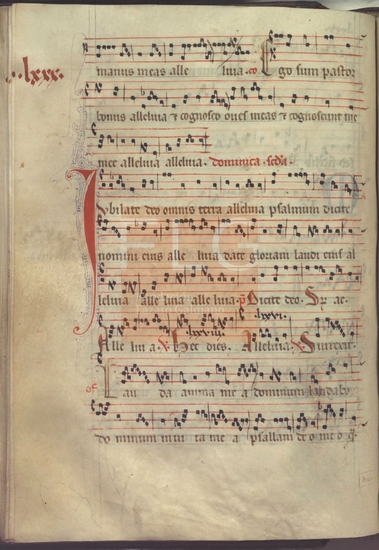 .lxxx.
manus meas alle luia. co Ego sum pastor
bonus alleluia et cognosco oues meas et cognoscunt me
mee alleluia alleluia. dominica. scda.
Iubilate deo omnis terra alleluia psalmum dicite
nomini eius alle luia date gloriam laudi eius al
leluia alle luia alle luia. p Dicite deo. Gr ac.
.lxxvi.
.lxxviii.
Alle luia. V Hec dies. Alleluia. V Surrexit.
of Lau da anima mea dominum laudabo
dominum in ui ta me a psallam deo meo